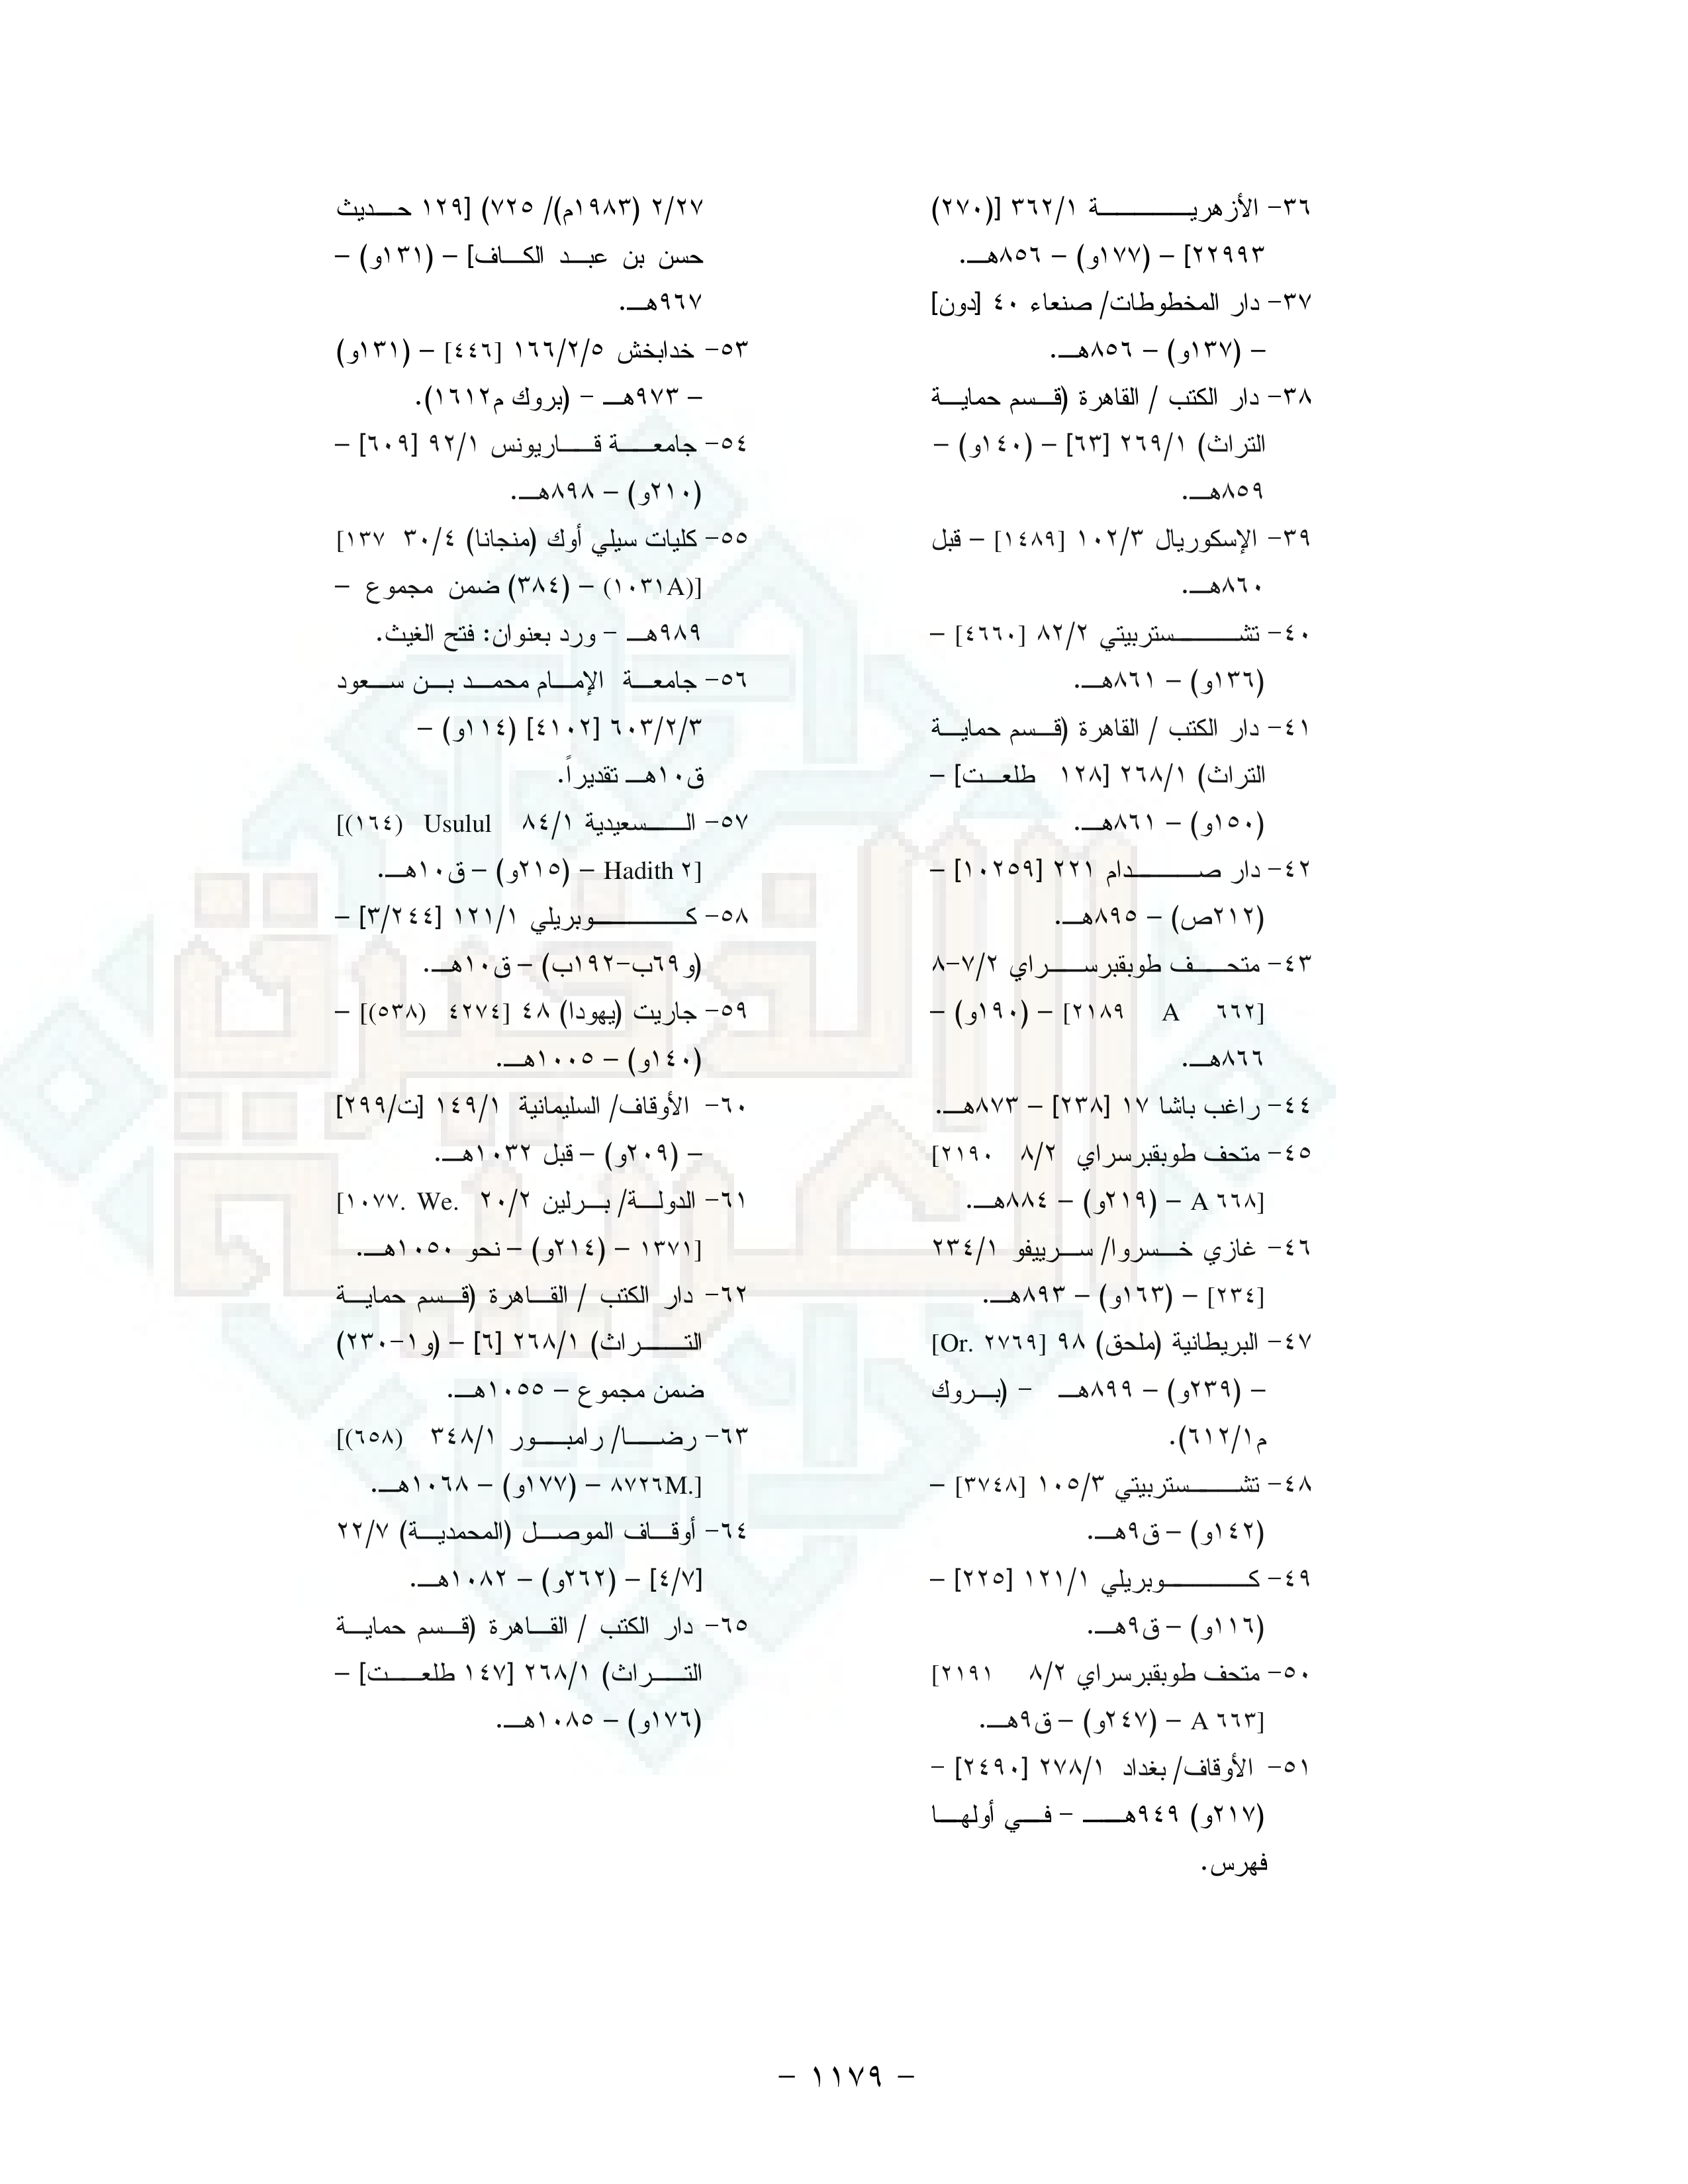 ٣٦- الأزهرية ٣٦٢/١ [(٢٧٠)
٢٢٩٩٣] – (١٧٧و) – ٨٥٦هـ.
٣٧- دار المخطوطات/ صنعاء ٤٠ [دون]
– (١٣٧و) – ٨٥٦هـ.
٣٨- دار الكتب / القاهرة (قسم حماية
التراث) ٢٦٩/١ [٦٣] – (١٤٠و) –
٨٥٩هـ.
٣٩- الإسكوريال ١٠٢/٣ [١٤٨٩] – قبل
٨٦٠هـ.
٤٠- تشستربيتي ٨٢/٢ [٤٦٦٠] –
(١٣٦و) – ٨٦١هـ.
٤١- دار الكتب / القاهرة (قسم حماية
التراث) ٢٦٨/١ [١٢٨ طلعت] –
(١٥٠و) – ٨٦١هـ.
٤٢- دار صدام ٢٢١ [١٠٢٥٩] –
(٢١٢ص) – ٨٩٥هـ.
٤٣- متحف طوبقبرسراي ٧/٢-٨
[٢١٨٩ A ٦٦٢] – (١٩٠و) –
٨٦٦هـ.
٤٤- راغب باشا ١٧ [٢٣٨] – ٨٧٣هـ.
٤٥- متحف طوبقبرسراي ٨/٢ [٢١٩٠
A ٦٦٨] – (٢١٩و) – ٨٨٤هـ.
٤٦- غازي خسروا/ سرييفو ٢٣٤/١
[٢٣٤] – (١٦٣و) – ٨٩٣هـ.
٤٧- البريطانية (ملحق) ٩٨ [Or. ٢٧٦٩]
– (٢٣٩و) – ٨٩٩هـ - (بروك
م٦١٢/١).
٤٨- تشستربيتي ١٠٥/٣ [٣٧٤٨] –
(١٤٢و) – ق٩هـ.
٤٩- كوبريلي ١٢١/١ [٢٢٥] –
(١١٦و) – ق٩هـ.
٥٠- متحف طوبقبرسراي ٨/٢ [٢١٩١
A ٦٦٣] – (٢٤٧و) – ق٩هـ.
٥١- الأوقاف/ بغداد ٢٧٨/١ [٢٤٩٠] –
(٢١٧و) ٩٤٩هـ – في أولها
فهرس.
٢/٢٧ (١٩٨٣م)/ ٧٢٥) [١٢٩ حديث
حسن بن عبد الكاف] – (١٣١و) –
٩٦٧هـ.
٥٣- خدابخش ١٦٦/٢/٥ [٤٤٦] – (١٣١و)
– ٩٧٣هـ - (بروك م١٦١٢).
٥٤- جامعة قاريونس ٩٢/١ [٦٠٩] –
(٢١٠و) – ٨٩٨هـ.
٥٥- كليات سيلي أوك (منجانا) ٣٠/٤ [١٣٧
(١٠٣١A)] – (٣٨٤) ضمن مجموع –
٩٨٩هـ - ورد بعنوان: فتح الغيث.
٥٦- جامعة الإمام محمد بن سعود
٦٠٣/٢/٣ [٤١٠٢] (١١٤و) –
ق١٠هـ تقديراً.
٥٧- السعيدية ٨٤/١ [(١٦٤) Usulul
Hadith ٢] – (٢١٥و) – ق١٠هـ.
٥٨- كوبريلي ١٢١/١ [٣/٢٤٤] –
(و٦٩ب-١٩٢ب) – ق١٠هـ.
٥٩- جاريت (يهودا) ٤٨ [٤٢٧٤ (٥٣٨)] –
(١٤٠و) – ١٠٠٥هـ.
٦٠- الأوقاف/ السليمانية ١٤٩/١ [ت/٢٩٩]
– (٢٠٩و) – قبل ١٠٣٢هـ.
٦١- الدولة/ برلين ٢٠/٢ [١٠٧٧. We.
١٣٧١] – (٢١٤و) – نحو ١٠٥٠هـ.
٦٢- دار الكتب / القاهرة (قسم حماية
التراث) ٢٦٨/١ [٦] – (و١-٢٣٠)
ضمن مجموع – ١٠٥٥هـ.
٦٣- رضا/ رامبور ٣٤٨/١ [(٦٥٨)
٨٧٢٦M.] – (١٧٧و) – ١٠٦٨هـ.
٦٤- أوقاف الموصل (المحمدية) ٢٢/٧
[٤/٧] – (٢٦٢و) – ١٠٨٢هـ.
٦٥- دار الكتب / القاهرة (قسم حماية
التراث) ٢٦٨/١ [١٤٧ طلعت] –
(١٧٦و) – ١٠٨٥هـ.
– ١١٧٩ –